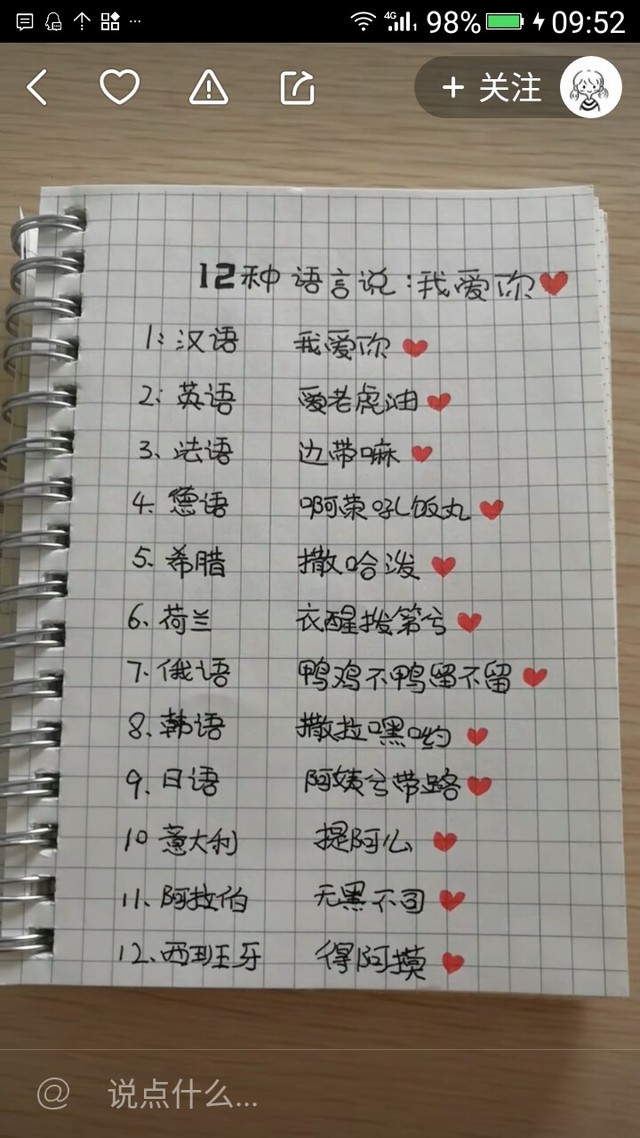 98% 09:52
4G
+ 关注
12种语言说:我爱你
1: 汉语 我爱你
2: 英语 爱老虎油
3、法语 边带嘛
4. 德语 啊荣吼饭丸
5. 希腊 撒哈泼
6. 荷兰 衣醒拨第兮
7. 俄语 鸭鸡不鸭留不留
8. 韩语 撒拉嘿哟
9. 日语 阿姨兮带路
10 意大利 提阿么
11. 阿拉伯 无黑不司
12. 西班牙 得阿摸
@ 说点什么...